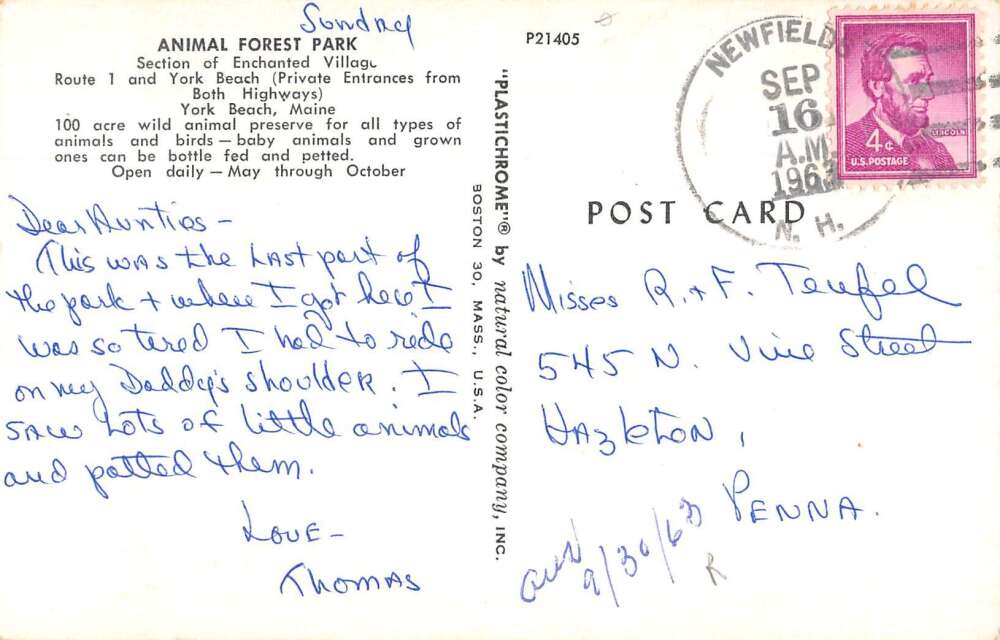 Sunday
ANIMAL FOREST PARK
Section of Enchanted Village
Route 1 and York Beach (Private Entrances from
Both Highways)
York Beach, Maine
100 acre wild animal preserve for all types of
animals and birds — baby animals and grown
ones can be bottle fed and petted.
Open daily — May through October
Dear Aunties -
This was the last part of
the park + when I got here I
was so tered I had to ride
on my Daddy's shoulder. I
saw lots of little animals
and patted them.
Love -
Thomas
"PLASTICHROME"® by natural color company, INC.
BOSTON 30, MASS., U.S.A.
P21405
NEWFIELDS
SEP
16
A.M.
1963
N. H.
LINCOLN
4¢
U.S. POSTAGE
POST CARD
Misses R. + F. Teufel
545 N. Vine Street
Hazleton,
Penna.
9/30/63
R